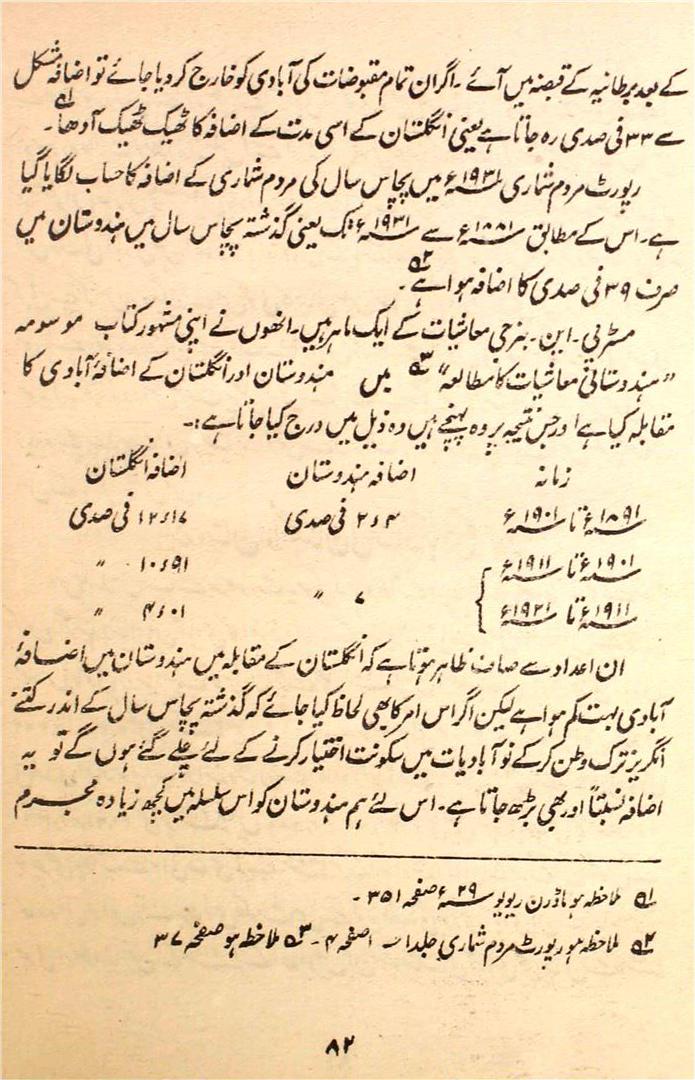 کے بعد برطانیہ کے قبضہ میں آئے ۔ اگر ان تمام مقبوضات کی آبادی کو خارج کر دیا جائے تو اضافہ مشکل
سے ۳۳ فی صدی رہ جاتا ہے یعنی انگلستان کے اسی مدت کے اضافہ کا ٹھیک ٹھیک آدھا ۱؎ ۔
رپورٹ مردم شماری ۱۹۳۱؁ء میں پچاس سال کی مردم شماری کے اضافہ کا حساب لگایا گیا
ہے ۔ اس کے مطابق ۱۸۸۱؁ء سے ۱۹۳۱؁ء تک یعنی گذشتہ پچاس سال میں ہندوستان میں
صرف ۳۹ فی صدی کا اضافہ ہوا ہے ۲؎ ۔
مسٹر پی ۔ این ۔ بنرجی معاشیات کے ایک ماہر ہیں ۔ انھوں نے اپنی مشہور کتاب موسومہ
"ہندوستانی معاشیات کا مطالعہ" ۳؎ میں ہندوستان اور انگلستان کے اضافۂ آبادی کا
مقابلہ کیا ہے اور جس نتیجہ پر وہ پہنچے ہیں وہ ذیل میں درج کیا جاتا ہے :۔
زمانہ اضافہ ہندوستان اضافہ انگلستان
۱۸۹۱؁ء تا ۱۹۰۱؁ء ۲ء۴ فی صدی ۱۲ء۱۷ فی صدی
۱۹۰۱؁ء تا ۱۹۱۱؁ء ۱۰ء۹۱ "
۱۹۱۱؁ء تا ۱۹۲۱؁ء ۷ " ۴ء۰۱ "
ان اعداد سے صاف ظاہر ہوتا ہے کہ انگلستان کے مقابلہ میں ہندوستان میں اضافۂ
آبادی بہت کم ہوا ہے لیکن اگر اس امر کا بھی لحاظ کیا جائے کہ گذشتہ پچاس سال کے اندر کتنے
انگریز ترک وطن کر کے نو آبادیات میں سکونت اختیار کرنے کے لئے چلے گئے ہوں گے تو یہ
اضافہ نسبتاً اور بھی بڑھ جاتا ہے ۔ اس لئے ہم ہندوستان کو اس سلسلہ میں کچھ زیادہ مجرم
۱؎ ملاحظہ ہو ماڈرن ریویو ۲۹؁ء صفحہ ۳۵۱ ۔
۲؎ ملاحظہ ہو رپورٹ مردم شماری جلد ۱ صفحہ ۴ ۔ ۳؎ ملاحظہ ہو صفحہ ۳۷
۸۲